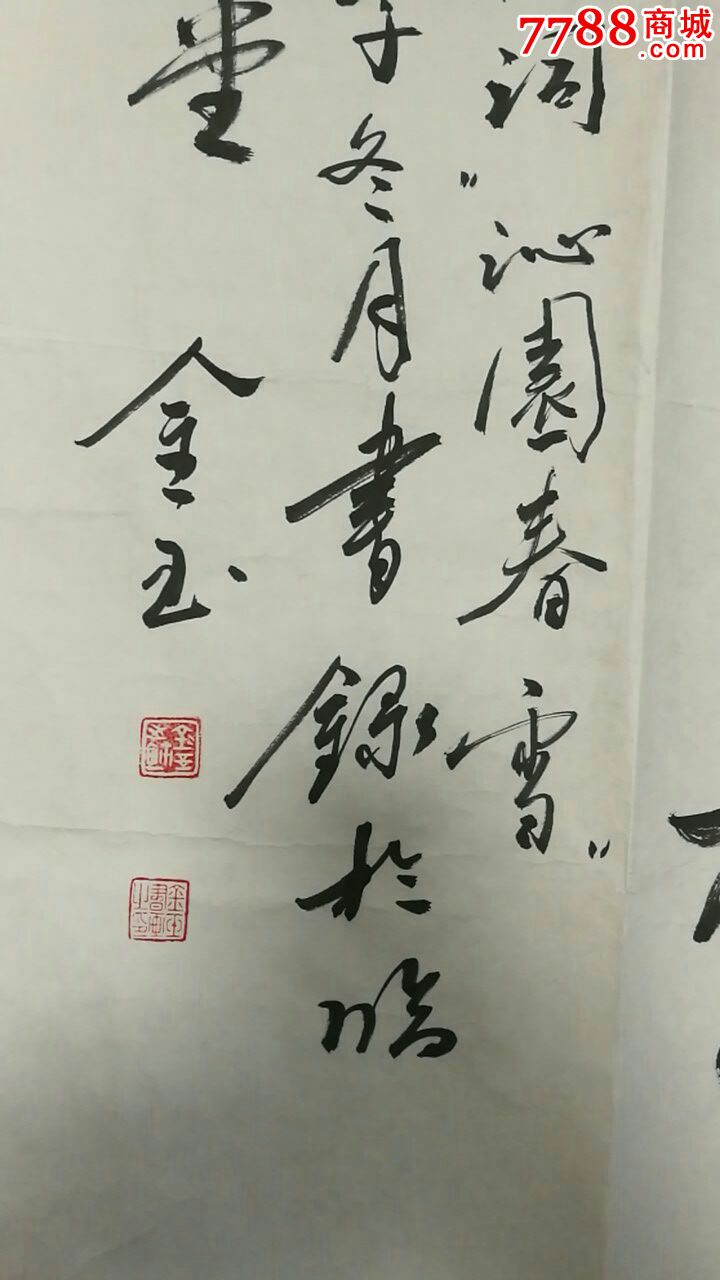 7788商城
.com
词"沁園春雪"
冬月書録於臨
堂 金玉